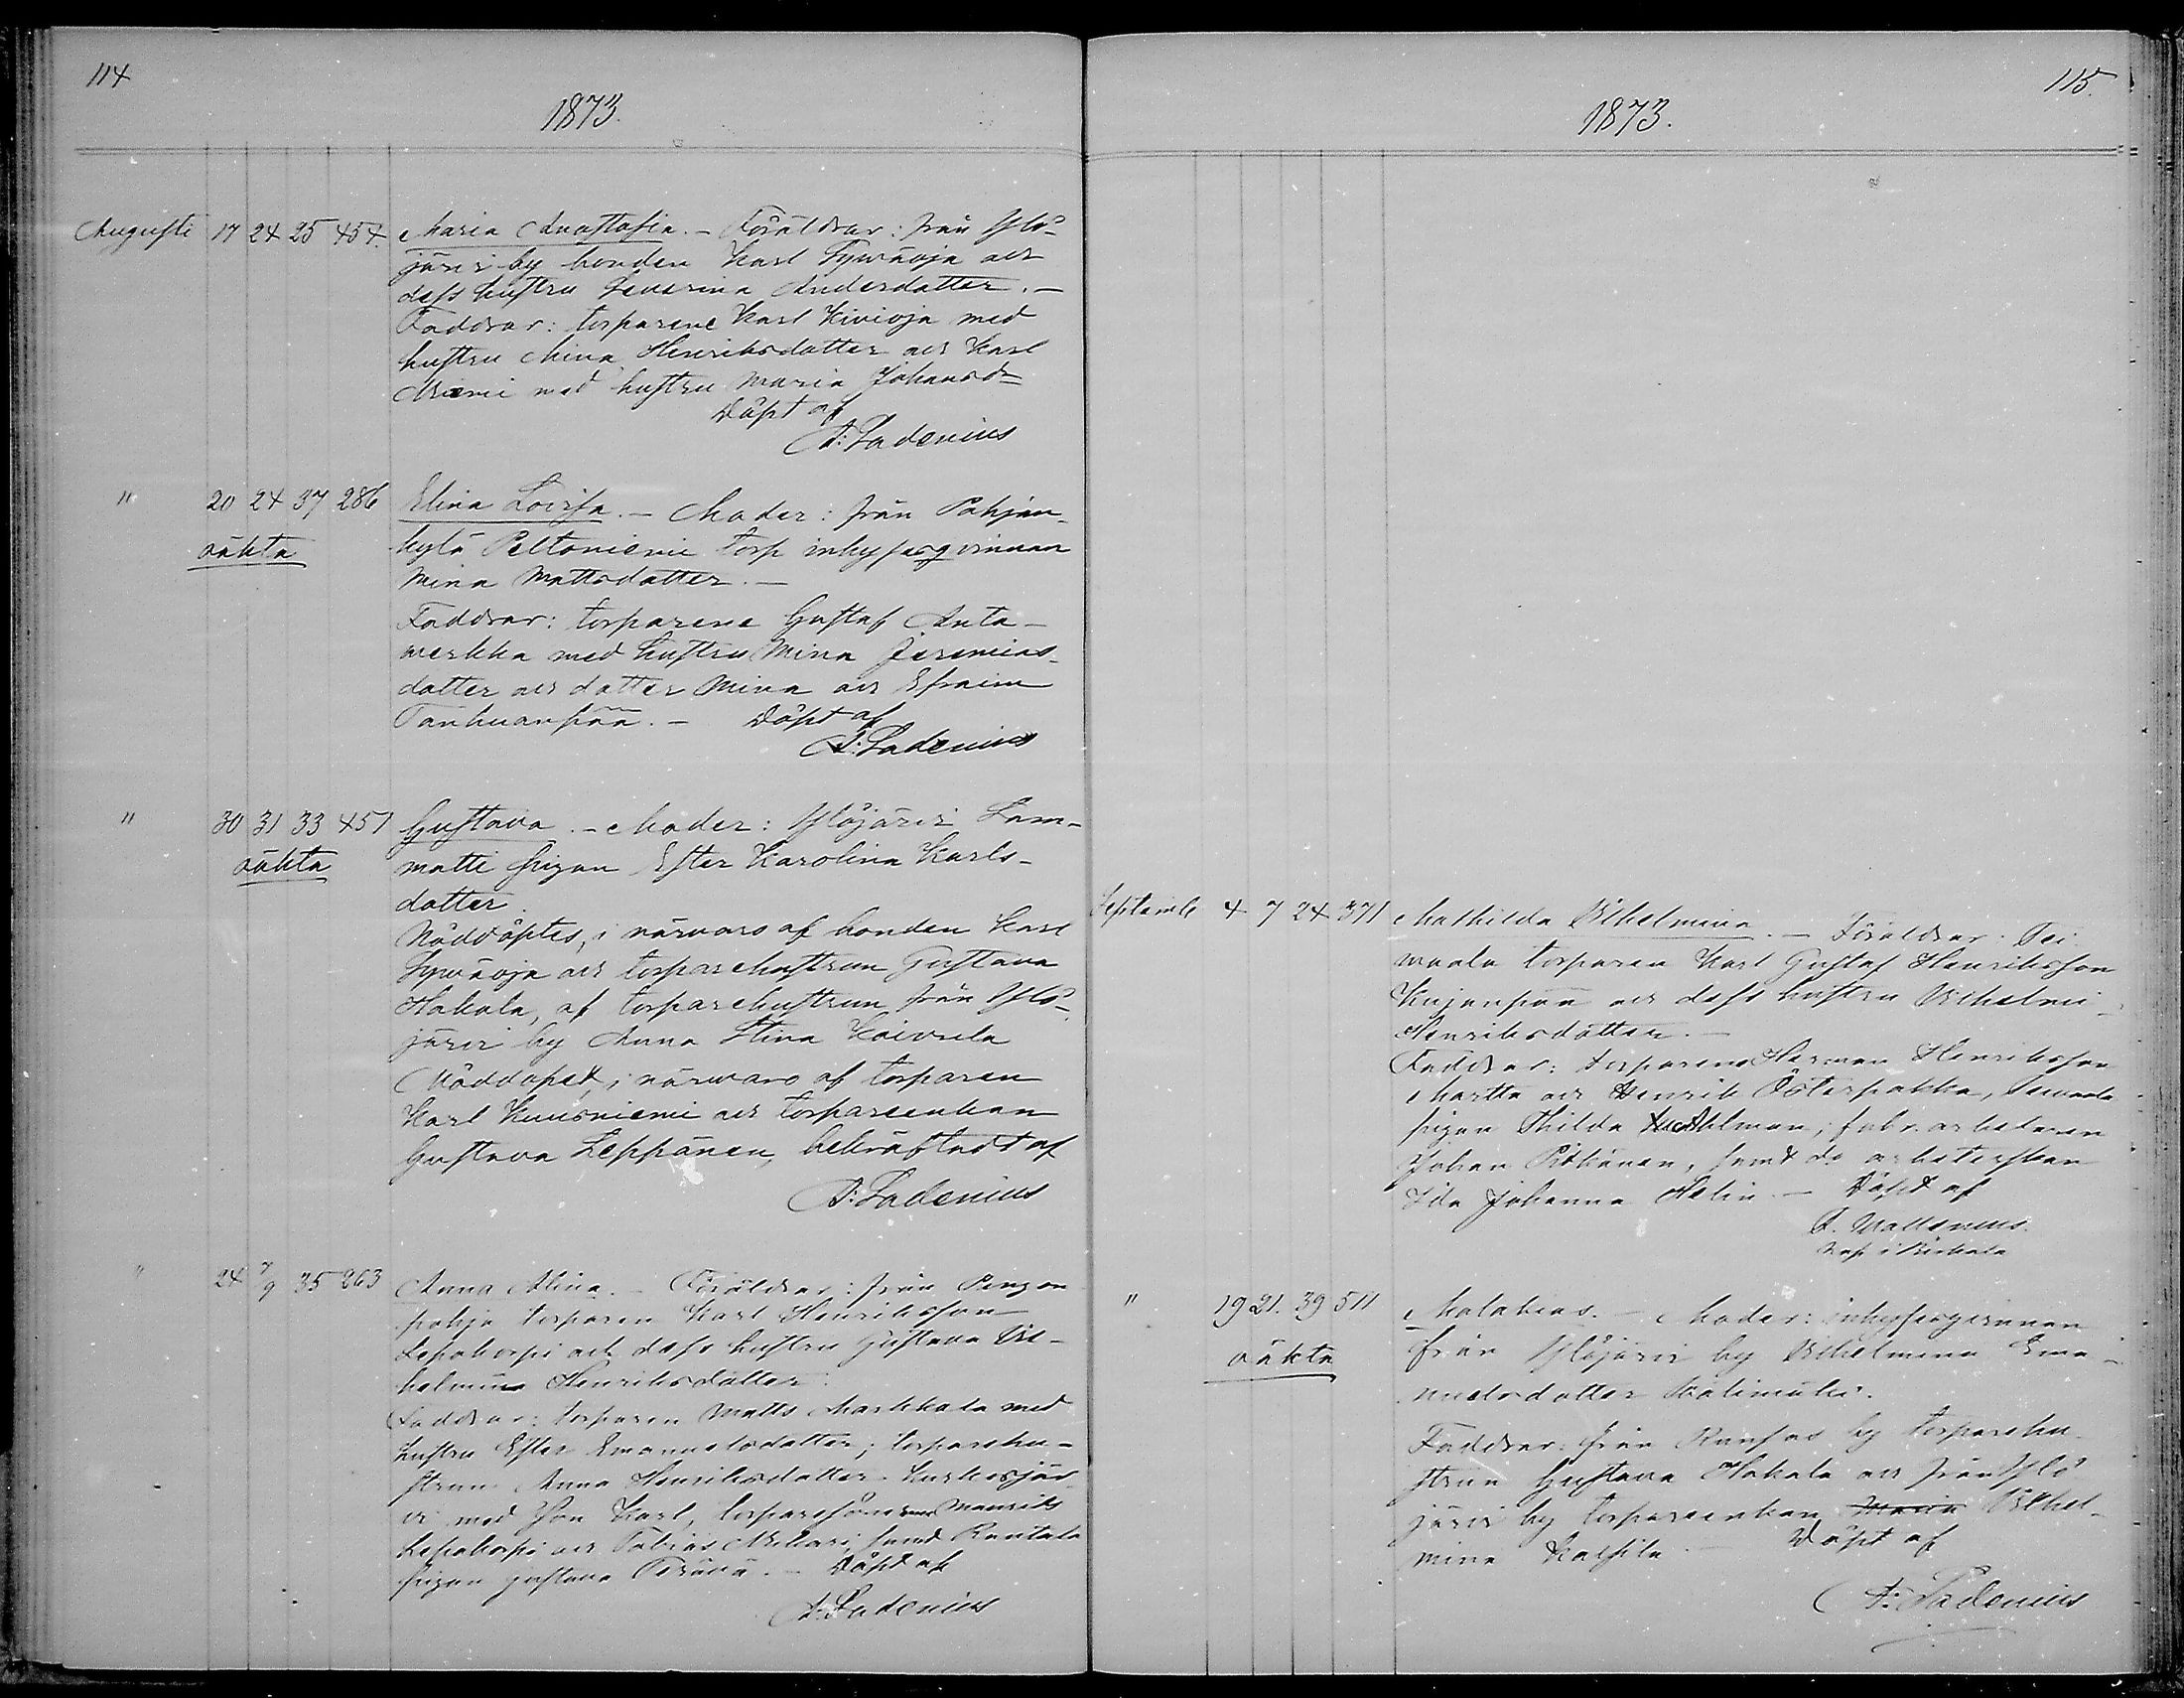 114
1873.
Augusti 17 24 25 454 Maria Anastasia. - Föräldrar: från Ylö-
järvi by bonden Karl Tyrväoja och
dess hustru Severina Andersdotter. -
Faddrar: torparene Karl Kivioja med
hustru Mina Henriksdotter och Karl
Niemi med hustru Maria Johansdr
Döpt af
A: Ladenius
" 20 24 37 286 Elina Lovisa. - Moder: från Pohjan-
oäkta kylä Peltoniemi torp inhysesqvinnan
Mina Mattsdotter. -
Faddrar: torparene Gustaf Anta-
werkka med hustru Mina Jeremias-
dotter och dotter Mina och Efraim
Tanhuanpää. - Döpt af
A: Ladenius
" 30 31 33 457 Gustava. - Moder: Ylöjärvi Lam-
oäkta matti pigan Ester Karolina Karls-
dotter.
Nöddöptes, i närvaro af bonden Karl
Tyrväoja och torparehustrun Gustava
Hakala, af torparehustrun från Ylö-
järvi by Anna Stina Koivula
Nöddopet, i närwaro af torparen
Karl Kuusniemi och torpareenkan
Gustava Leppänen, bekräftadt af
A: Ladenius
" 24 7/9 35 263 Anna Alina. - Föräldrar: från Pengon
pohja torparen Karl Henriksson
Lepokorpi och dess hustru Gustava Vil-
helmina Henriksdotter.
Faddrar: torparen Matts Markkola med
hustru Ester Emanuelsdotter; torparehu-
strun Anna Henriksdotter Kurkesjär
vi med son Karl, torparesönerne Maurits
Lepokorpi och Tobias Mikari samt Rantala
pigan Gustava Perävä. - Döpt af
A: Ladenius
115.
1873.
Septemb 4 7 24 371 Mathilda Vilhelmina. - Föräldrar: Tei
waala torparen Karl Gustaf Henriksson
Kujanpää och dess hustru Vilhelmi-
Henriksdotter. -
Faddrar: torparene Herman Henriksson
Martta och Henrik Österpakka,
pigan Thilda Ahlman, fabr. arbetaren
Johan Pitkänen, samt do arbeterskan
Ida Johanna Helin. - Döpt af
A. Wallenius.
Kap i Birkala
" 19 21. 39 511 Malakias. - Moder: inhysesqvinnan
oäkta från Ylöjärvi by Vilhelmina Ema-
nuelsdotter Kalimäki.
Faddrar: från Runsas by torparehu-
strun Gustava Hakala och från Ylö
järvi by torpareenkan Maria Vilhel-
mina Kaipila. - Döpt af
A: Ladenius